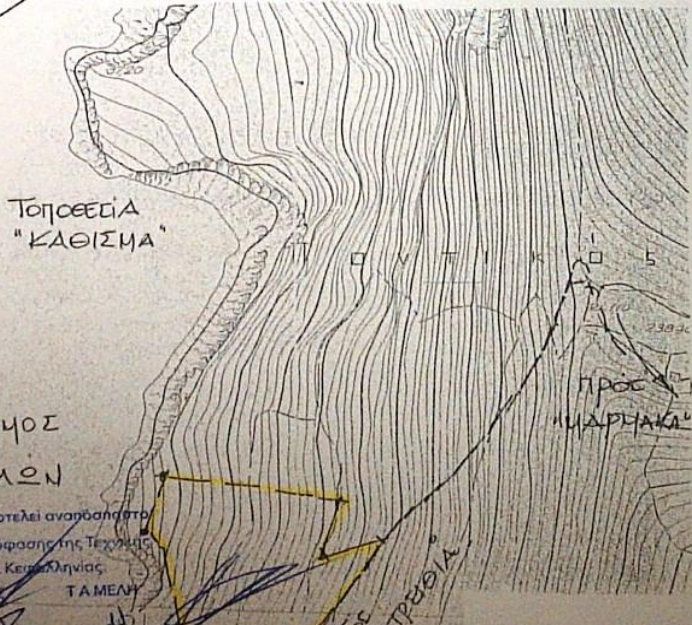 ΤΟΠΟΘΕΣΙΑ
"ΚΑΘΙΣΜΑ"
Π Ο Ν Τ Ι Κ Ο Σ
ΠΡΟΣ
"ΜΑΡΜΑΚΑ"
ΜΟΣ
ΜΩΝ
οτελεί αναπόσπαστο
όφασης της Τεχνικής
Κεφαλληνίας.
Τ Α ΜΕΛΗ